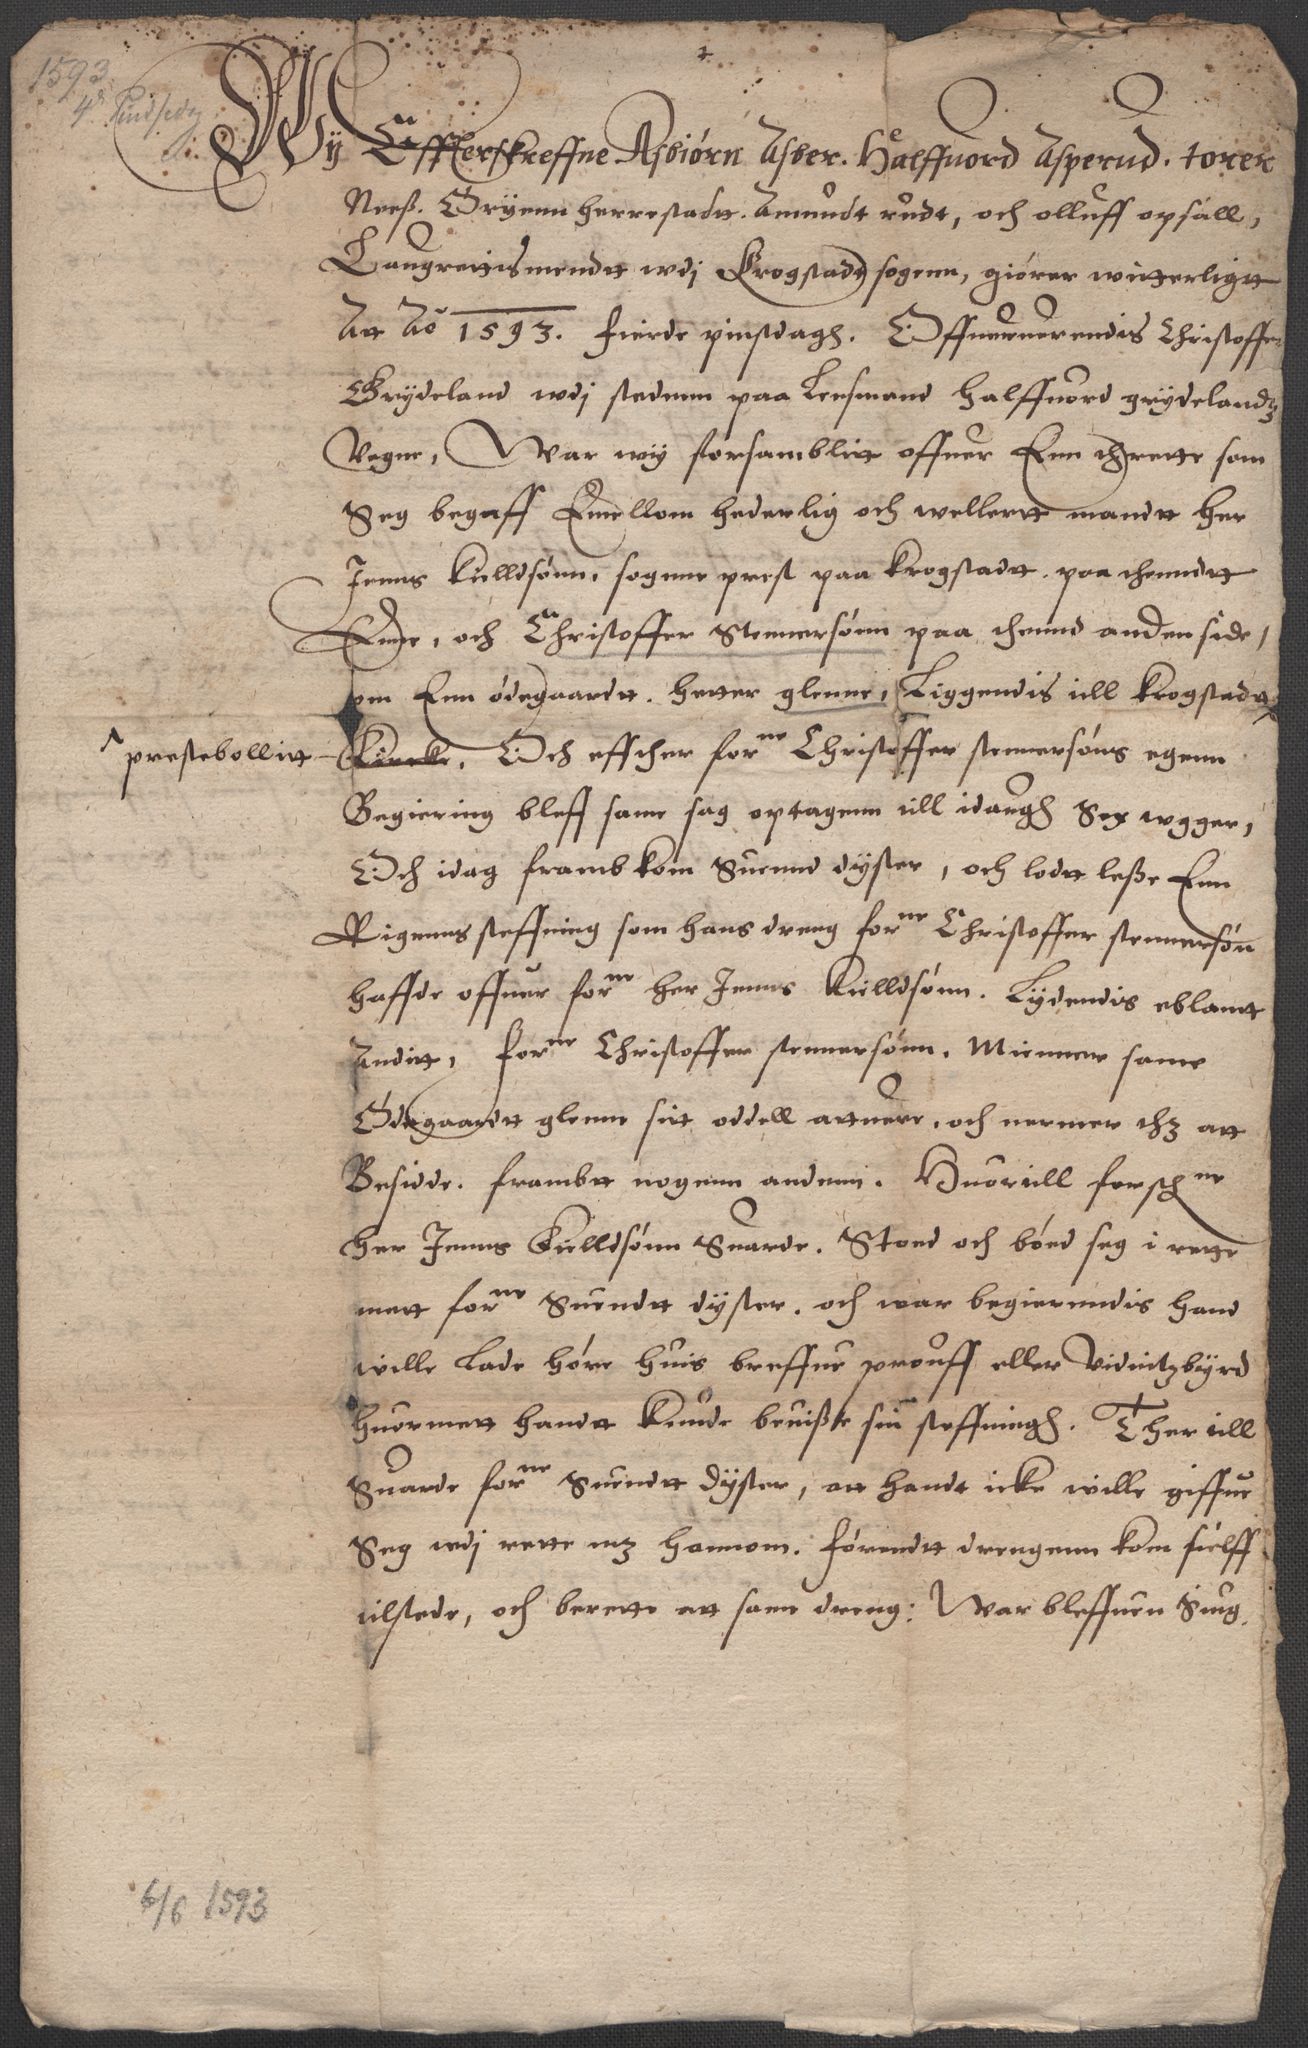 1593
4d Pindsedag
Wij Effterskreffne Asbiørn Asber. Halffuord Asperud. torer
Neeß. Øryenn herrestadt. Amundt rudt, och olluff opsall,
Laugrettismendtt wdj Krogstadt sogenn, giører witterligtt
Att Ao 1593. fierde pinstdagh. Offueruerendis Christoffer
Grydeland wdj stedenn paa Lensmand halffuord grydelandz
Vegne, War wij forsamblitt offuer Enn thrette som
Seg begaff Emellom hederlig och wellertt mandtt her
Jenns Kielldsønn, sogene prest paa Krogstadtt. paa thenndtt
Ene, och Christoffer Stennersønn paa thennd anden side,
om Enn ødegaardtt. hetter glenne, Liggendis till Krogstadtt
^ prestebollitt Kircke. Och effther forne Christoffer stennersøns egenn
Begiering bleff same sag optagenn till idaugh Sex wgger,
Och idag framb kom Suennd dyster, och lodtt leße Enn
Rigenns steffning som hans dreng forne Christoffer stennersøn
haffde offuer forne her Jenns Kielldsønn. Lydendis eblantt
Anditt, forne Christoffer stennersønn. Mienner same
Ødegaardtt glenne sitt oddell attuere, och nermer thz att
Besidde. frambtt nogenn andenn. Huortill forschne
her Jenns Kielldsønn Suarde. Stoed och bøed seg i rette
mett forne Suendtt dyster. och war begierendis hand
wille Lade høre huis breffue prouff eller Vidnitzbyrd
huormett handtt kunde beuißte sin steffningh. Ther till
Suarde forne Suendtt Dyster, att handt icke wille giffue
Seg wdj rette mz hannom. førendtt drengenn kom sielff
tilstede, och berette att same dreng: War bleffuen Siug.
6/6 1593